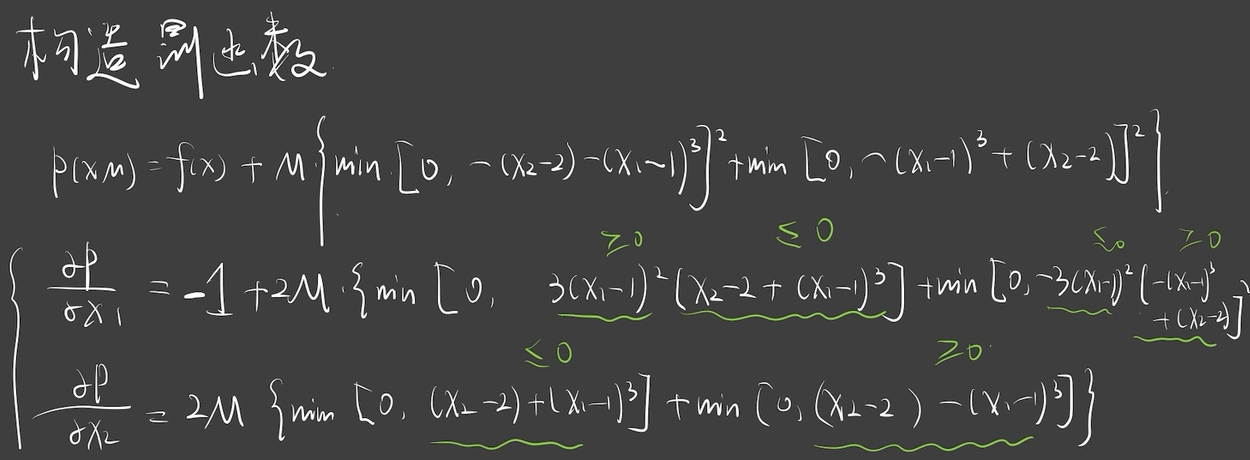 构造罚函数
p(x,M) = f(x) + M·{min [0, -(x₂-2)-(x₁-1)³]² + min [0, -(x₁-1)³+(x₂-2)]²}
≥0 ≤0 ≤0 ≥0
∂p/∂x₁ = -1 + 2M·{min [0, 3(x₁-1)²(x₂-2+(x₁-1)³] + min [0, -3(x₁-1)²(-(x₁-1)³
+(x₂-2)]
≤0 ≥0
∂p/∂x₂ = 2M {min [0, (x₂-2)+(x₁-1)³] + min [0, (x₂-2)-(x₁-1)³]}